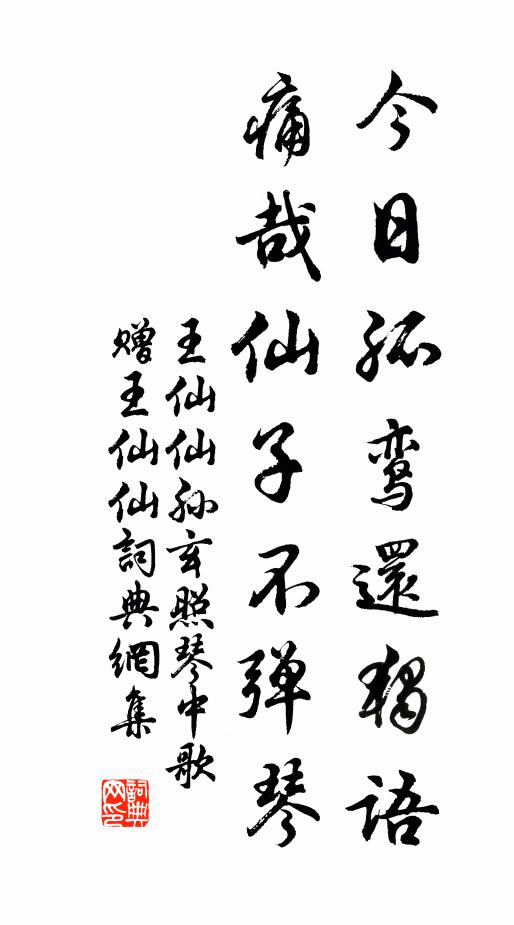 今日孤鸾還獨語
痛哉仙子不弹琴
王仙仙孙玄照琴中歌
赠王仙仙詞典網集
詞典网印